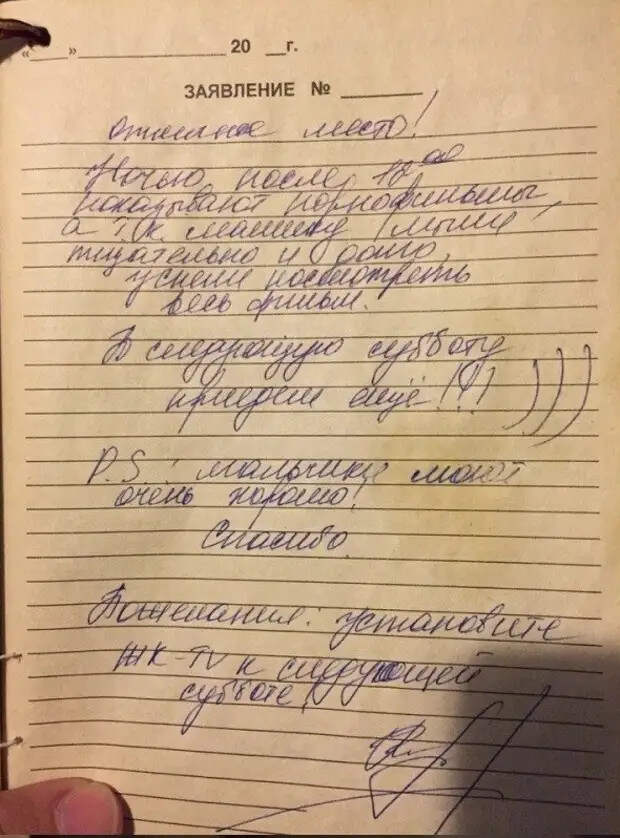 «___» ____________ 20 __г.
ЗАЯВЛЕНИЕ № ________
Отличное место!
Ночью после 12⁰⁰
показывают порнофильмы,
а т.к. машину мыли
тщательно и долго,
успели посмотреть
весь фильм.
В следующую субботу
приедем ещё!!! )))
P.S: мальчики моют
очень хорошо!
Спасибо.
Пожелания: установите
ЖК-TV к следующей
субботе!